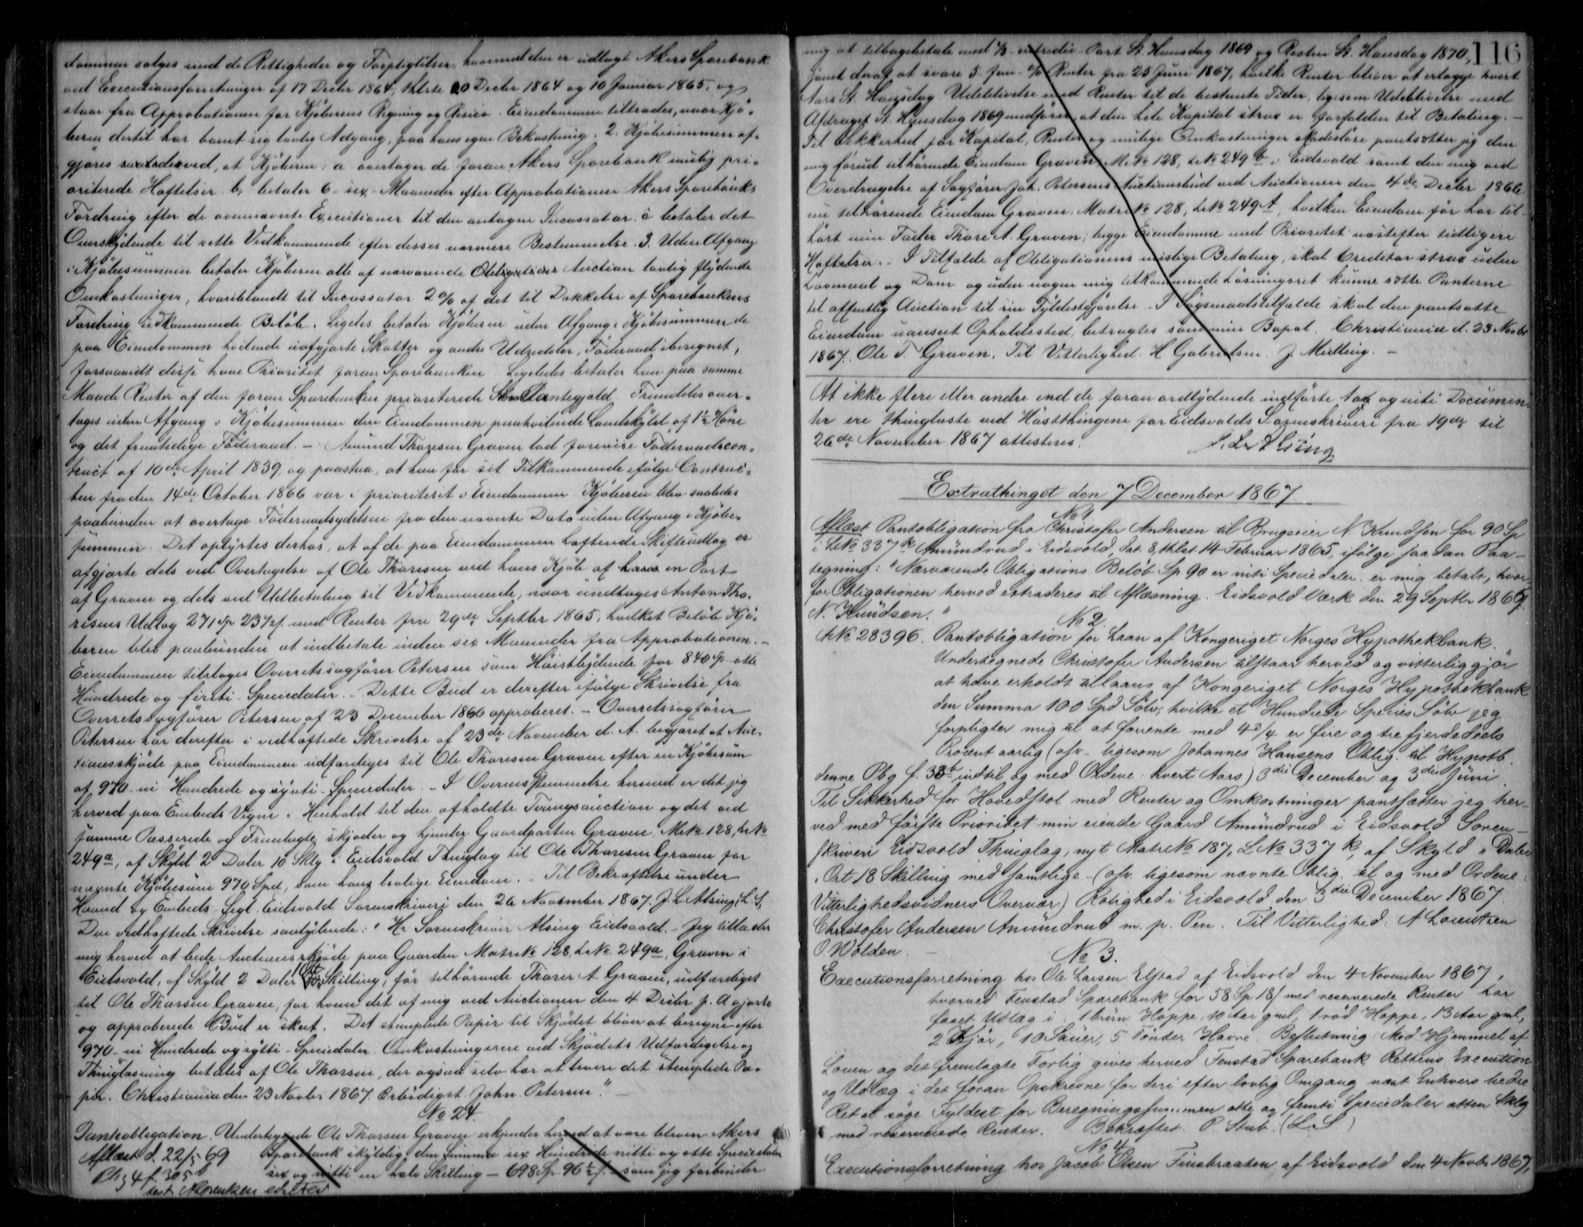 dommen sælges med de Rettigheder og Forpligtelser, hvormed den er udlagt Akers Sparebank
ved Executionsforretninger af 17 Decbr 1864, 20 Decbr 1864 og 10 Januar 1865, og
staar fra Approbationen for Kjøberens Regning og Risico. Eiendommen tiltrædes, naar Kjø-
beren dertil har banet sig lovlig Adgang, paa hans egen Bekostning. 2. Kjøbesummen af-
gjøres saaledes ved, at Kjøberen: a overtager de foran Akers Sparebank mulig pri-
oriterede Hæftelser b, betaler 6 - sex - Maaneder efter Approbationen Akers Sparebanks
Fordring efter de ovennævnte Executioner til den antagne Incassator. c betaler det
Overskydende til rette Vedkommende efter desses nærmere Bestemmelse. 3. Uden Afgang
i Kjøbesummen betaler Kjøberen alle af nærværende Auction lovlig flydende
Omkostninger, hvoriblandt til Incassator 2 % af det til Dækkelse af Sparebankens
Fordring udkommende Beløb. Ligeles betaler Kjøberen uden Afgang i Kjøbesummen de
paa Eiendommen hvilende uafgjorte Skatter og andre Udredsler, Føderaad iberegnet,
forsaavidt disse have Prioritet foran Sparebanken. Ligeledes betaler han paa samme
Maade Renter af den foran Sparebanken prioriterede Pantegjæld. Fremdeles over-
tages uden Afgang i Kjøbesummen den Eiendommen paahvilende Landskyld af 1½ Høne
og det fremtidige Føderaad. - Amund Thoresen Graven lod forevise Føderaadscon-
tract af 10de April 1839 og paastaa, at han for sit Tilkommende ifølge Contrac-
ten fra den 14de October 1866 var i prioriteret i Eiendommen. Kjøberen blev saaledes
paabunden at overtage Føderaadsydelsen fra den nævnte Dato uden Afgang i Kjøbe-
summen. Det oplystes derhos, at af de paa Eiendommen hæftende Skifteudlæg er
afgjorte dels ved Overtagelse af Ole Thoresen ved hans Kjøb af en Part
af Graven og dels ved Udbetaling til Vedkommende, naar undtages Anton Tho-
resens Udlæg 271 Sp 23 ß med Renter fra 29de Septbr 1865, hvilket Beløb Kjø-
beren blev paabunden at indbetale inden sex Maaneder fra Approbationen. -
Eiendommen tilsloges Overretssagfører Petersen som Høistbydende for 840 Sp otte
Hundrede og firti Speciedaler. - Dette Bud er derefter ifølge Skrivelse fra
Overretssagfører Petersen af 23 December 1866 approberet. - Overretssagfører
Petersen har derefter i vedhæftede Skrivelse af 23de November d. A. begjæret at Auc-
tionsskjøde paa Eiendommen udfærdiges til Ole Thoresen Graven efter en Kjøbesum
af 970 - ni Hundrede og sytti - Speciedaler. - I Overensstemmelse hermed er det jeg
herved paa Embeds Vegne i Henhold til den afholdte Tvangsauction og det ved
samme Passerede og Fremlagte skjøder og hjemler Gaardparten Graven M.No 128, L.No
249a, af Skyld 2 Daler 10 Sklg i Eidsvold Thinglag til Ole Thoresen Graven for
nævnte Kjøbesum 970 Spd, som hans lovlige Eiendom. - Til Bekræftelse under
Haand og Embeds Segl. Eidsvold Sorenskriveri den 26 November 1867. J. L. Alsing (L.S.)
Den vedhæftede Skrivelse saalydende: "Hr Sorenskriver Alsing Eidsvold. Jeg tillader
mig herved at bede Auctionsskjøde paa Gaarden Matr.No 128, L.No 249a, Graven i
Eidsvold, af Skyld 2 Daler Skilling, før tilhørende Thorer A. Graven, udfærdiget
til Ole Thorsen Graven, for hvem det af mig ved Auctionen den 4 Decbr f. A gjorte
og approberede Bud er skeet. Det stemplede Papir til Skjødet bliver at beregne efter
970 - ni Hundrede og sytti - Speciedaler. Omkostningerne ved Skjødets Udfærdigelse og
Thinglæsning betales af Ole Thorsen, der ogsaa selv har at levere det stemplede Pa-
pir. Christiania den 23 Novbr 1867. Ærbødigst John Petersen." -
No 24.
Pantobligation. Undertegnede Ole Thorsen Graven erkjender herved at være bleven Akers
Aflæst d. 22/5 69 Sparebank skyldig den Summa sex Hundrede nitti og otte Speciedaler
sex og nitti en halv Skilling - 698 Sp 96½ ß - som jeg forbinder
116
mig at tilbagebetale med ⅓ - Part St. Hansdag 1869 og Resten St. Hansdag 1870,
samt deraf at svare 5 - fem - % Renter fra 23 Juni 1867, hvilke Renter bliver at erlægge hvert
Aars St. Hansdag. Udeblivelse med Renter til de bestemte Tider, ligesom Udeblivelse med
Afdraget St. Hansdag 1869 medfører, at den hele Kapital strax er forfalden til Betaling. -
Til Sikkerhed for Kapital, Renter og mulige Omkostninger skadesløse pantsætter jeg den
mig forud tilhørende Eiendom Graven, M.No 128, L.No 249 i Eidsvold samt den mig ved
Overdragelse af Sagfører Joh. Petersens Auctionsbud ved Auctionen den 4de Decbr 1866
nu tilhørende Eiendom Graven, Matr.No 128, L.No 249a, hvilken Eiendom før har til-
hørt min Fader Thore A. Graven, begge Eiendomme med Prioritet næstefter tidligere
Hæftelser. - I Tilfælde af Obligationens mislige Betaling, skal Creditor strax uden
Lovmaal og Dom og uden nogen mig tilkommende Løsningsret kunne sætte Panterne
til offentlig Auction til sin Fyldestgjørelse. - I Søgsmaalstilfælde skal den pantsatte
Eiendom uanseet Opholdssted, betragtes som min Bopæl. Christiania d. 23 Novbr
1867. Ole T. Graven. Til Vitterlighed: H Gabrielsen. J. Midling. -
At ikke flere eller andre end de foran ordlydende indførte og niti Documen-
ter ere thinglæste ved Høstthingene for Eidsvolds Sorenskriveri fra 19de til
26de November 1867 attesteres.
J. L. Alsing
Extrathinget den 7 December 1867
No 1
Aflæst Pantobligation fra Christofer Andersen til Brugseier N Knudsen for 90 Sp
i L.No 337k Amundrud i Eidsvold, dat. 8, thlst 14 Februar 1865, ifølge saadan Paa-
tegning: "Nærværende Obligations Beløb Sp 90 er niti Speciedaler er mig betalt, hvor-
for Obligationen herved extraderes til Aflæsning. Eidsvold Værk den 29 Septbr 1867
N. Knudsen."
No 2
L.No 28396. Pantobligation for Laan af Kongeriget Norges Hypothekbank.
Undertegnede Christofer Andersen tilstaar herved og vitterliggjør
at have erholdt tillaans af Kongeriget Norges Hypothekbank
den Summa 100 Spd Sølv, hvilke et Hundrede Species Sølv jeg
forpligter mig til at forrente med 4¾ er fire og tre fjerdedeels
Procent aarlig (ofv. ligesom Johannes Hansens Oblig. til Hypoth.
denne Pbg f. 38 indtil og med Ordene: hvert Aars) 3die December og 3die Juni.
Til Sikkerhed for Hovedstol med Renter og Omkostninger pantsætter jeg her-
ved med første Prioritet min eiende Gaard Amundrud i Eidsvold Soren-
skriveri Eidsvold Thinglag, nyt Matr.No 187, L.No 337 k, af Skyld " Daler
. Ort 18 Skilling med samtlige (ofv. ligesom nævnte Oblig. til og med Ordene:
Vitterlighedsvidners Overvær) Rolighed i Eidsvold den 3die December 1867.
Christofer Andersen Amundrud m. p. Pen. Til Vitterlighed: A Lorentzen
O. Wolden. -
No 3.
Executionsforretning hos Ole Larsen Elstad af Eidsvold den 4 November 1867,
hvorved Feiestad Sparebank for 58 Sp 18 ß med reserverede Renter har
faaet Udlæg i: 1 brun Hoppe, 10 Aar gml, 1 rød Hoppe, 13 Aar gml,
2 Kjør, 10 Sauer, 5 Tønder Havre. Beslutning: Med Hjemmel af
Loven og det fremlagte Forlig gives herved Fenstad Sparebank Rettens Execution
og Udlæg i det foran Opskrevne for deri efter lovlig Omgang næst Enhvers bedre
Ret at søge Fyldest for Beregningssummen otte og femti Speciedaler atten Sklg
med reserverede Renter. Bekræftet. P. Stub. (L. S)
No 4
Executionsforretning hos Jacob Olsen Finsbraaten af Eidsvold den 4 Novbr 1867,